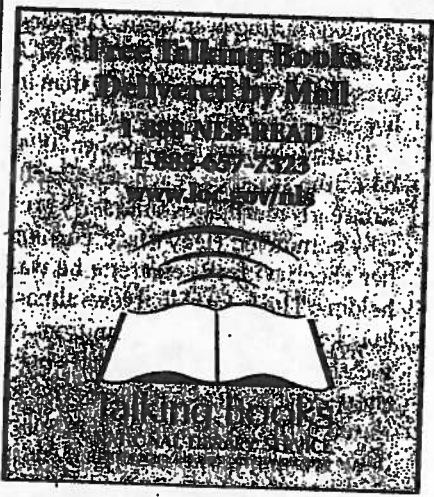 Free Talking Books
Delivered by Mail
1-888-NLS-READ
1-888-657-7323
www.loc.gov/nls
Talking books
NATIONAL LIBRARY SERVICE